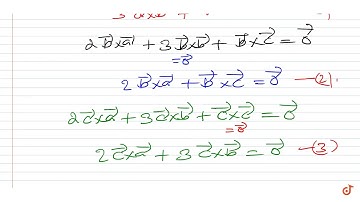 2b⃗×a⃗ + 3b⃗×b⃗ + b⃗×c⃗ = 0⃗
=0⃗
2b⃗×a⃗ + b⃗×c⃗ = 0⃗ —(2)
2c⃗×a⃗ + 3c⃗×b⃗ + c⃗×c⃗ = 0⃗
=0⃗
2c⃗×a⃗ + 3c⃗×b⃗ = 0⃗ —(3)